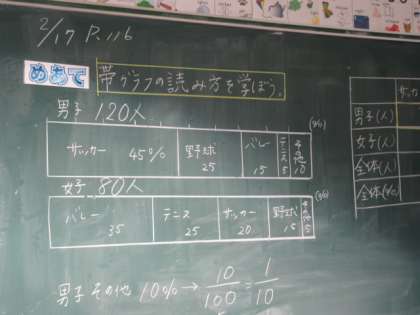 2/17 P.116
めあて 帯グラフの読み方を学ぼう。
男子 120人
(%)
サッカー 45% 野球 25 バレー 15 テニス 5 その他 10
女子 80人
(%)
バレー 35 テニス 25 サッカー 20 野球 15 その他 5
男子 その他 10% → 10/100 = 1/10
サッカ
男子(人)
女子(人)
全体(人)
全体(%)